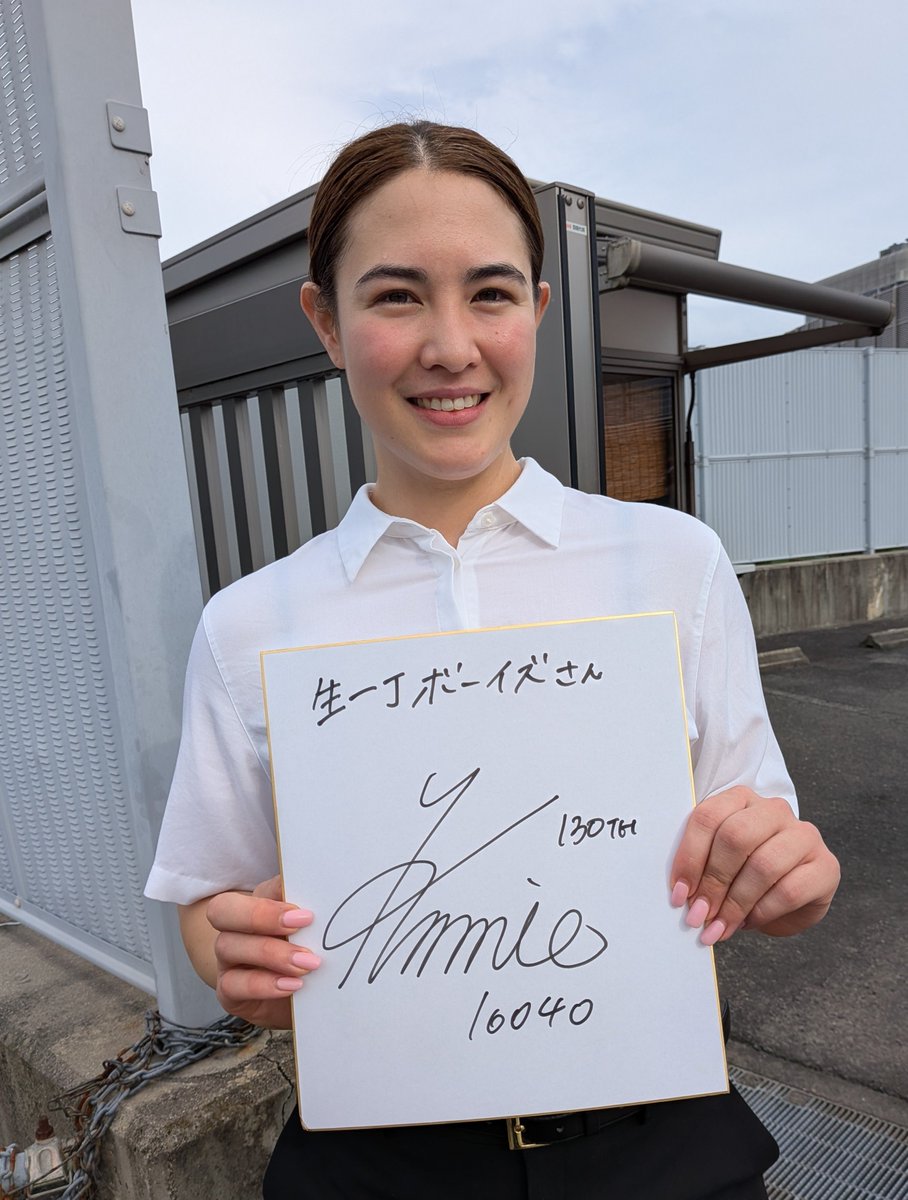 生一丁ボーイズさん
130TH
Annie
10040